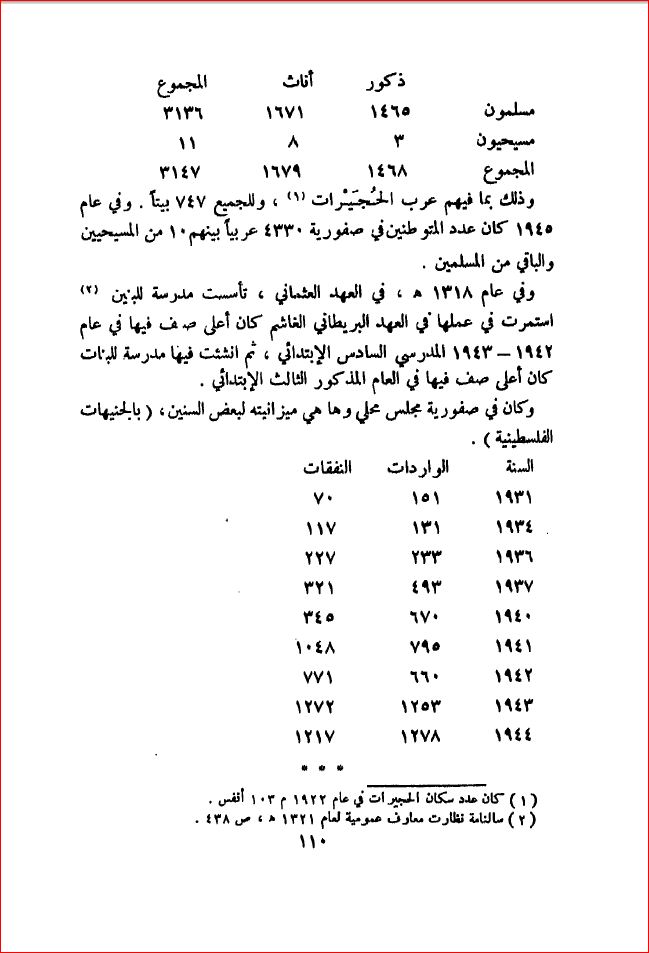 ذكور أناث المجموع
مسلمون ١٤٦٥ ١٦٧١ ٣١٣٦
مسيحيون ٣ ٨ ١١
المجموع ١٤٦٨ ١٦٧٩ ٣١٤٧
وذلك بما فيهم عرب الحُجَيْرات (١) ، وللجميع ٧٤٧ بيتاً . وفي عام
١٩٤٥ كان عدد المتوطنين في صفورية ٤٣٣٠ عربياً بينهم ١٠ من المسيحيين
والباقي من المسلمين .
وفي عام ١٣١٨ ه ، في العهد العثماني ، تأسست مدرسة للبنين (٢)
استمرت في عملها في العهد البريطاني الغاشم كان أعلى صف فيها في عام
١٩٤٢ – ١٩٤٣ المدرسي السادس الإبتدائي ، ثم انشئت فيها مدرسة للبنات
كان أعلى صف فيها في العام المذكور الثالث الإبتدائي .
وكان في صفورية مجلس محلي وها هي ميزانيته لبعض السنين ، ( بالجنيهات
الفلسطينية ) .
السنة الواردات النفقات
١٩٣١ ١٥١ ٧٠
١٩٣٤ ١٣١ ١١٧
١٩٣٦ ٢٣٣ ٢٢٧
١٩٣٧ ٤٩٣ ٣٢١
١٩٤٠ ٦٧٠ ٣٤٥
١٩٤١ ٧٩٥ ١٠٤٨
١٩٤٢ ٦٦٠ ٧٧١
١٩٤٣ ١٢٥٣ ١٢٧٢
١٩٤٤ ١٢٧٨ ١٢١٧
* * *
(١) كان عدد سكان الحجيرات في عام ١٩٢٢ م ١٠٣ أنفس .
(٢) سالنامة نظارت معارف عمومية لعام ١٣٢١ ه ، ص ٤٣٨ .
١١٠